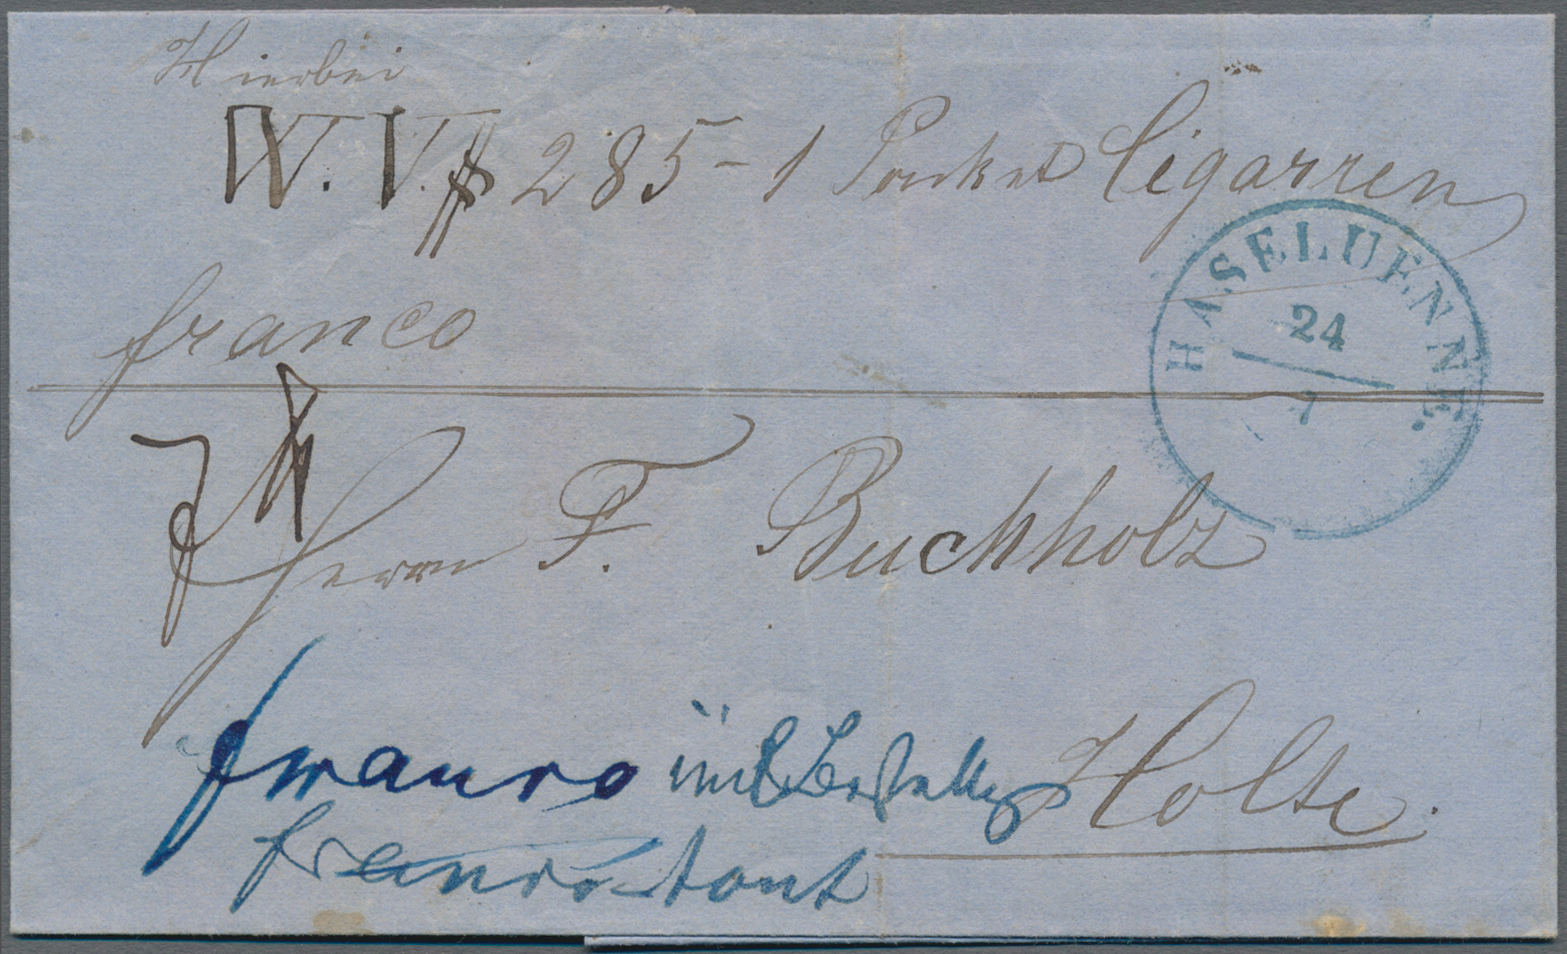 Hierbei
W. V. # 285 - 1 Packet Cigarren
franco
HASELUENNE.
24
7
Herrn F. Buchholz
franco incl Bestellg
Holte.
franco tout